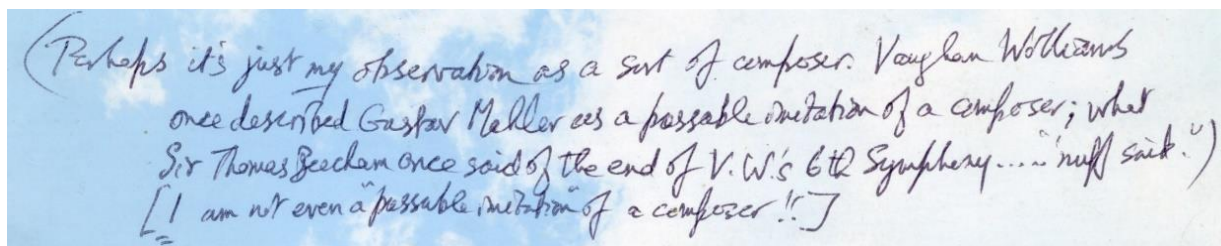 (Perhaps it's just my observation as a sort of composer. Vaughan Williams
once described Gustav Mahler as a passable imitation of a composer; what
Sir Thomas Beecham once said of the end of V.W.'s 6th Symphony..... 'nuff said.")
[I am not even a "passable imitation" of a composer!!]